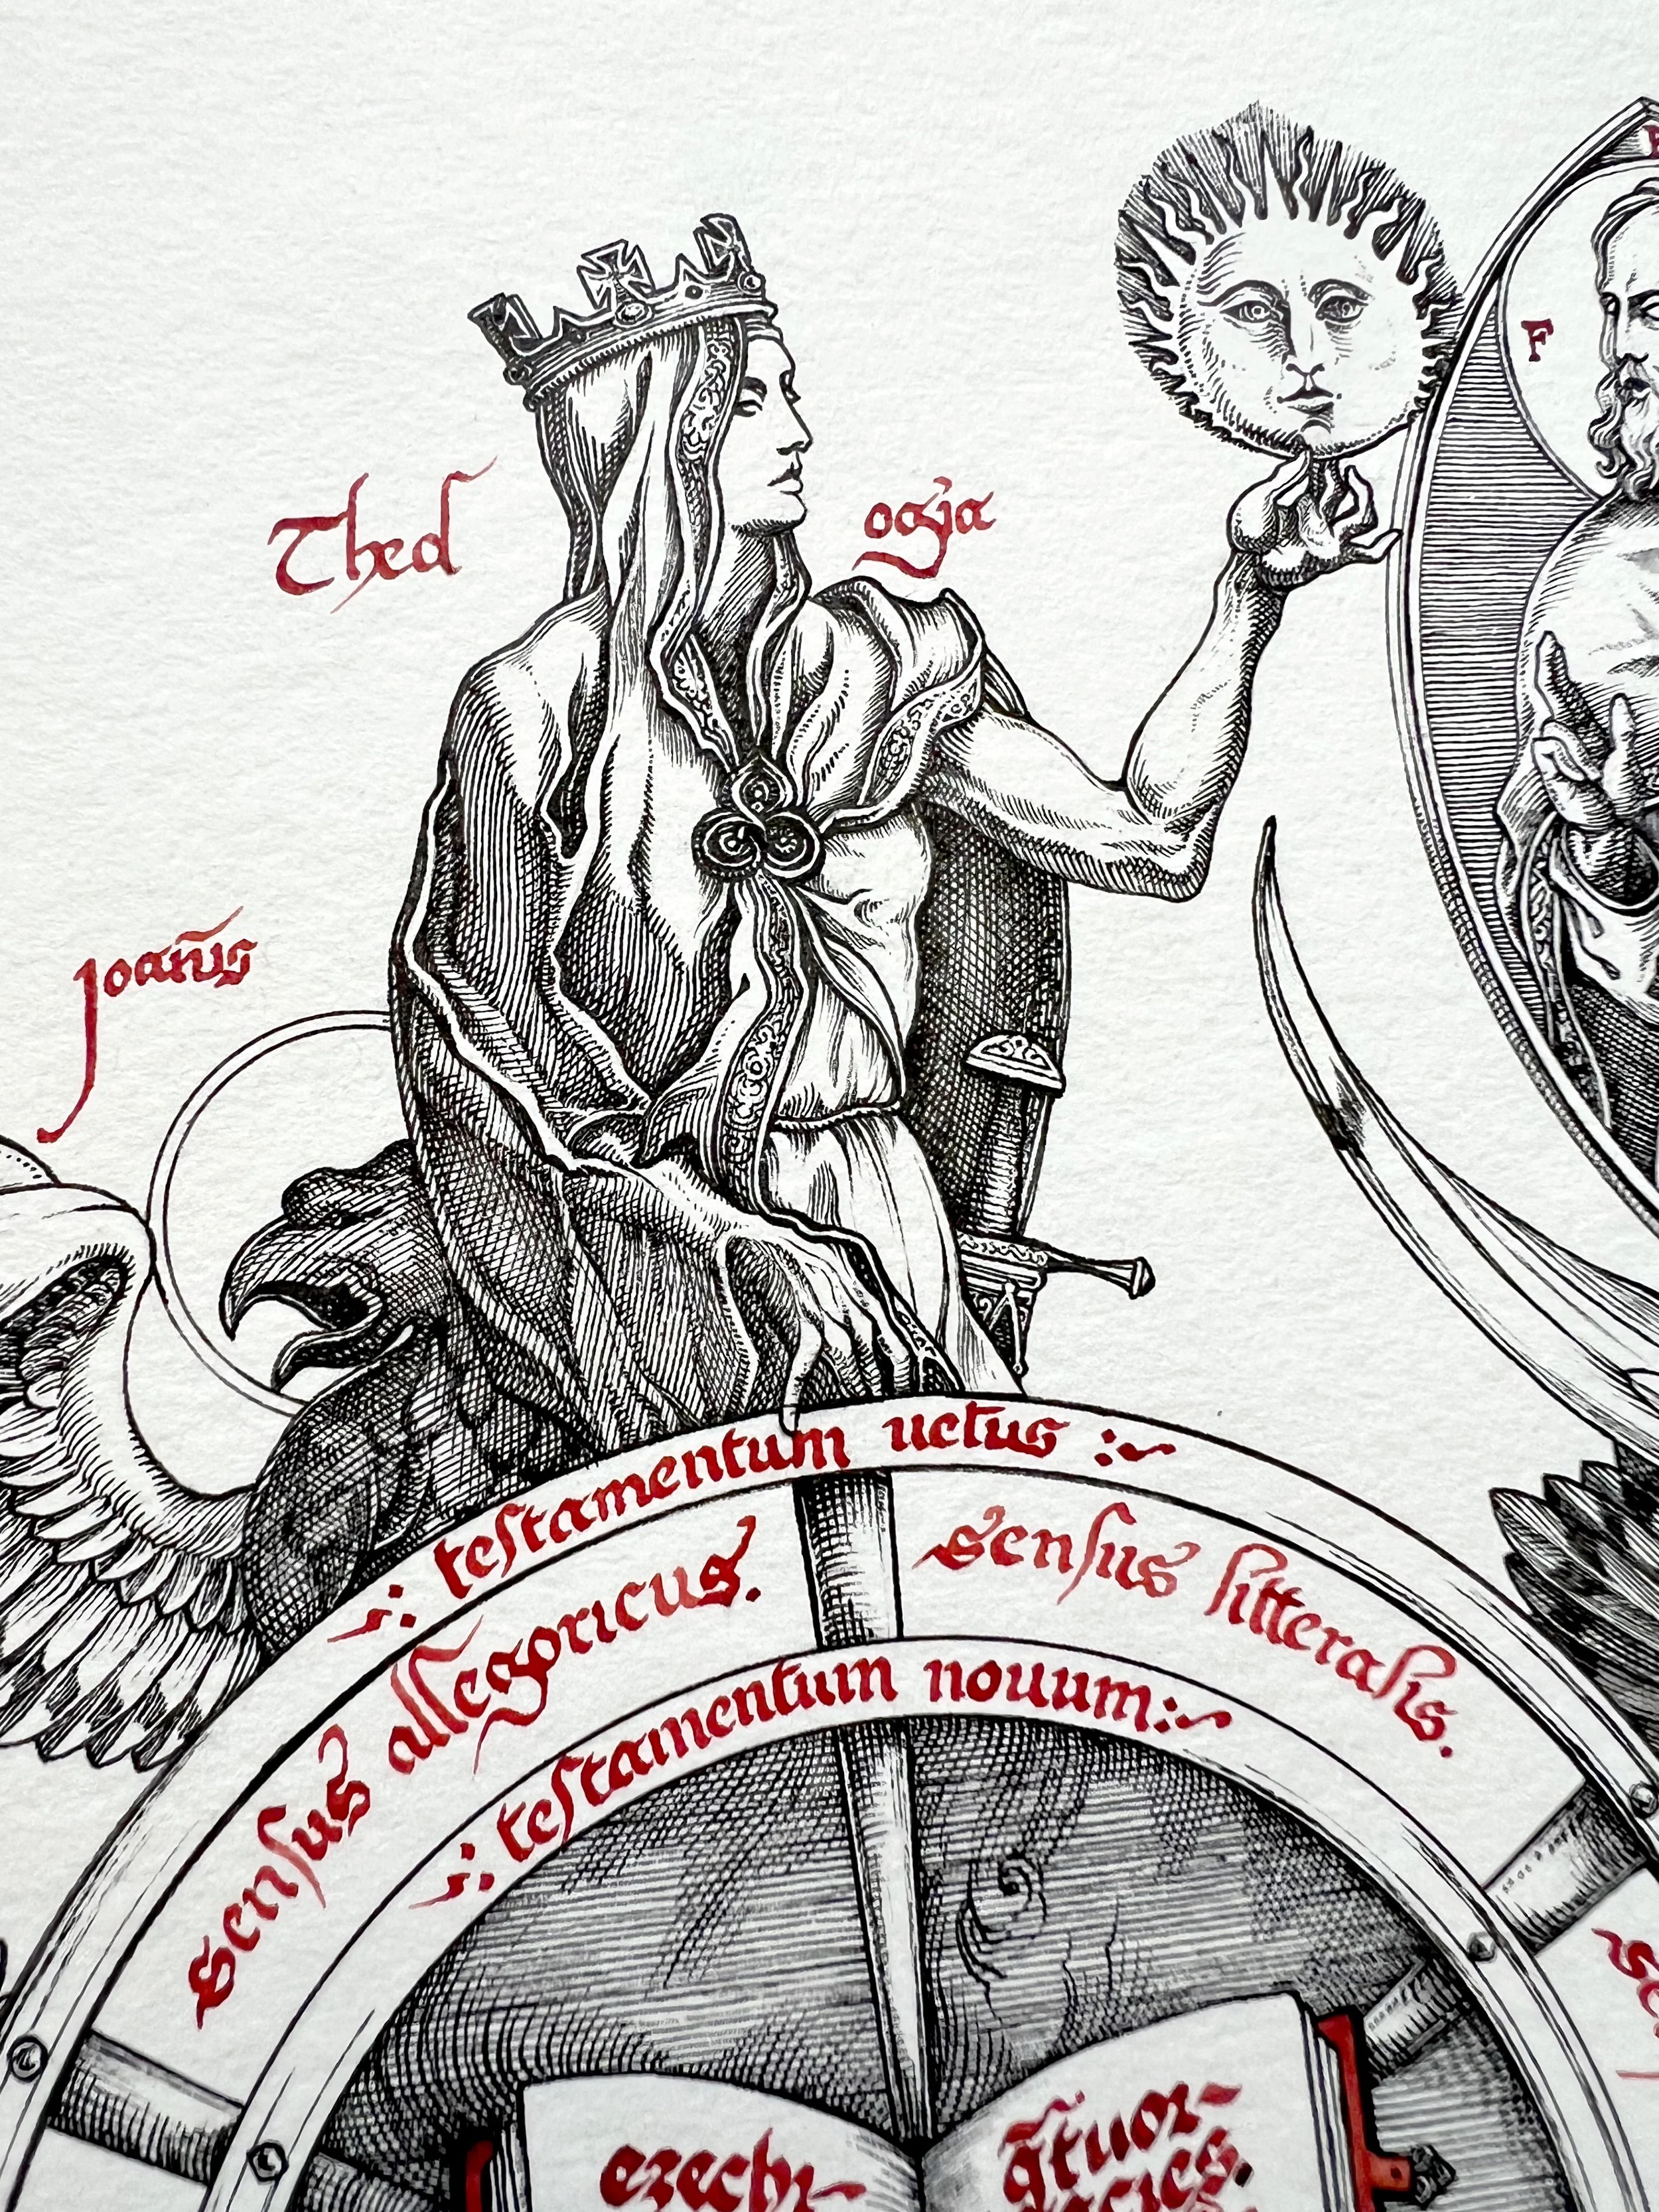 F
Theol ogia
Joañs
testamentum uetus
sensus allegoricus. sensus litteralis.
testamentum nouum
ezechi-
q̃tuor-